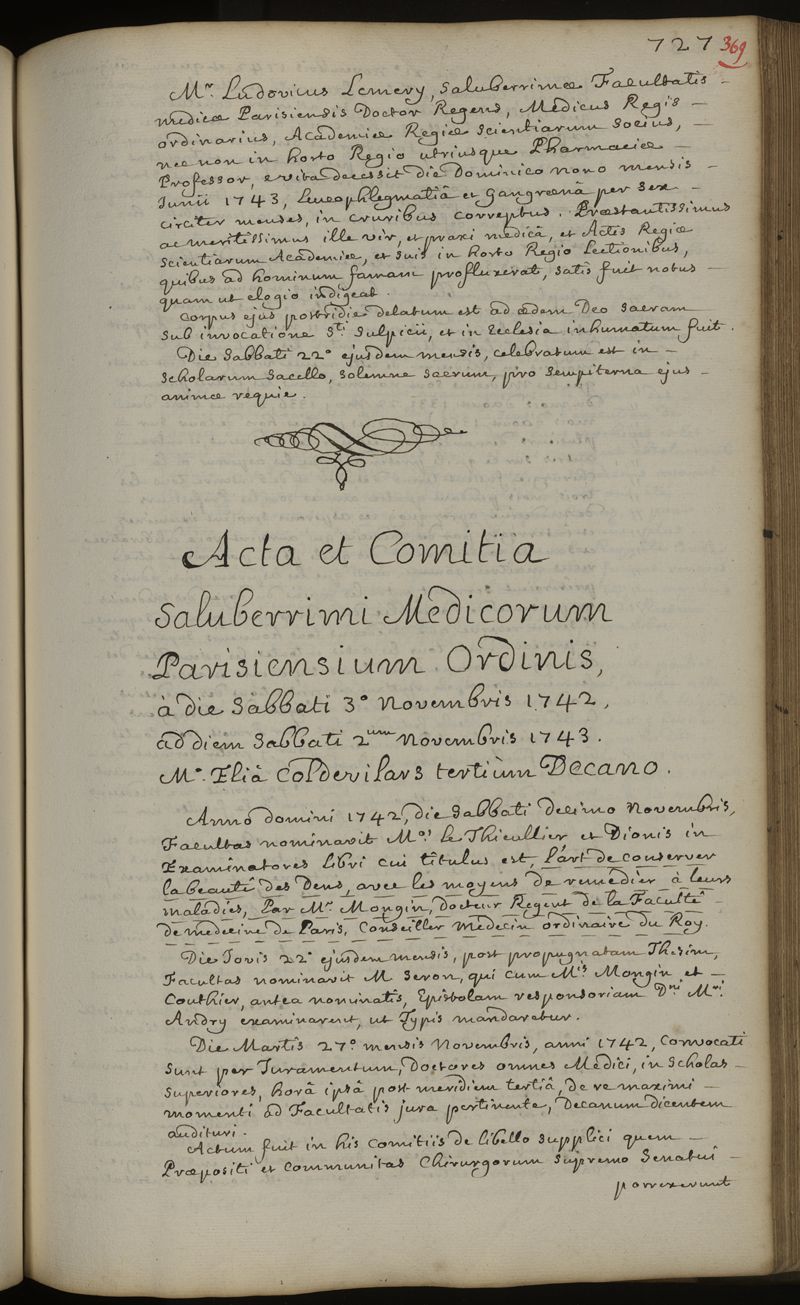 727 369
Mr. Ludovicus Lemery, Saluberrimæ Facultatis –
medicæ Parisiensis Doctor Regens, Medicus Regis –
ordinarius, Academiæ Regiæ Scientiarum Socius, –
nec non in horto Regio utriusque Pharmaciæ –
Professor, e vita decessit die Dominico nono mensis –
Junii 1743, Leucophlegmatiâ et gangrænâ per sex –
circiter menses, in cruribus correptus. Præstantissimus
ac meritissimus ille vir, et praxi medicâ, et Actis Regiæ
Scientiarum Academiæ, et suis in horto Regio Lectionibus,
quibus ad hominum famam profluxerat, satis fuit notus –
quam ut elogio indigeat.
Corpus ejus postridie delatum est ad ædem Deo Sacram
sub invocatione Sti Sulpicii, et in Ecclesia inhumatum fuit.
Die Sabbati 22° ejusdem mensis, celebratum est in –
Scholarum Sacello, solemne Sacrum, pro sempiterna ejus –
animæ requie.
Acta et Comitia
Saluberrimi Medicorum
Parisiensium Ordinis,
à die Sabbati 3° Novembris 1742,
ad diem Sabbati 2um Novembris 1743.
Mo. Eliâ Coldevilars tertiùm Decano.
Anno domini 1742, die Sabbati decimo Novembris,
Facultas nominavit Mos Le Thieullier, et Dionis in
Examinatores Libri cui titulus est, L'art de conserver
la beauté des Dens, avec les moyens de remedier à leurs
maladies, Par Mr. Mongin, docteur Regent de la Faculté
de medecine de Paris, Conseiller Medecin ordinaire du Roy.
Die Jovis 22° ejusdem mensis, post propugnatam Thesim,
Facultas nominavit M Seron, qui cum Mis Mongin et –
Couthier, antea nominatis, Epistolam responsoriam Dni Mri
Andry examinarent, ut Typis mandaretur.
Die Martis 27° mensis Novembris, anni 1742, Convocati
sunt per Juramentum, Doctores omnes Medici, in Scholas –
Superiores, horâ ipsâ post meridiem tertiâ, de re maximi –
momenti ad Facultatis jura pertinente, Decanum dicentem
audituri.
Actum fuit in his comitiis de libello supplici quem –
Præpositi et Communitas Chirurgorum supremo Senatui –
porrexerunt